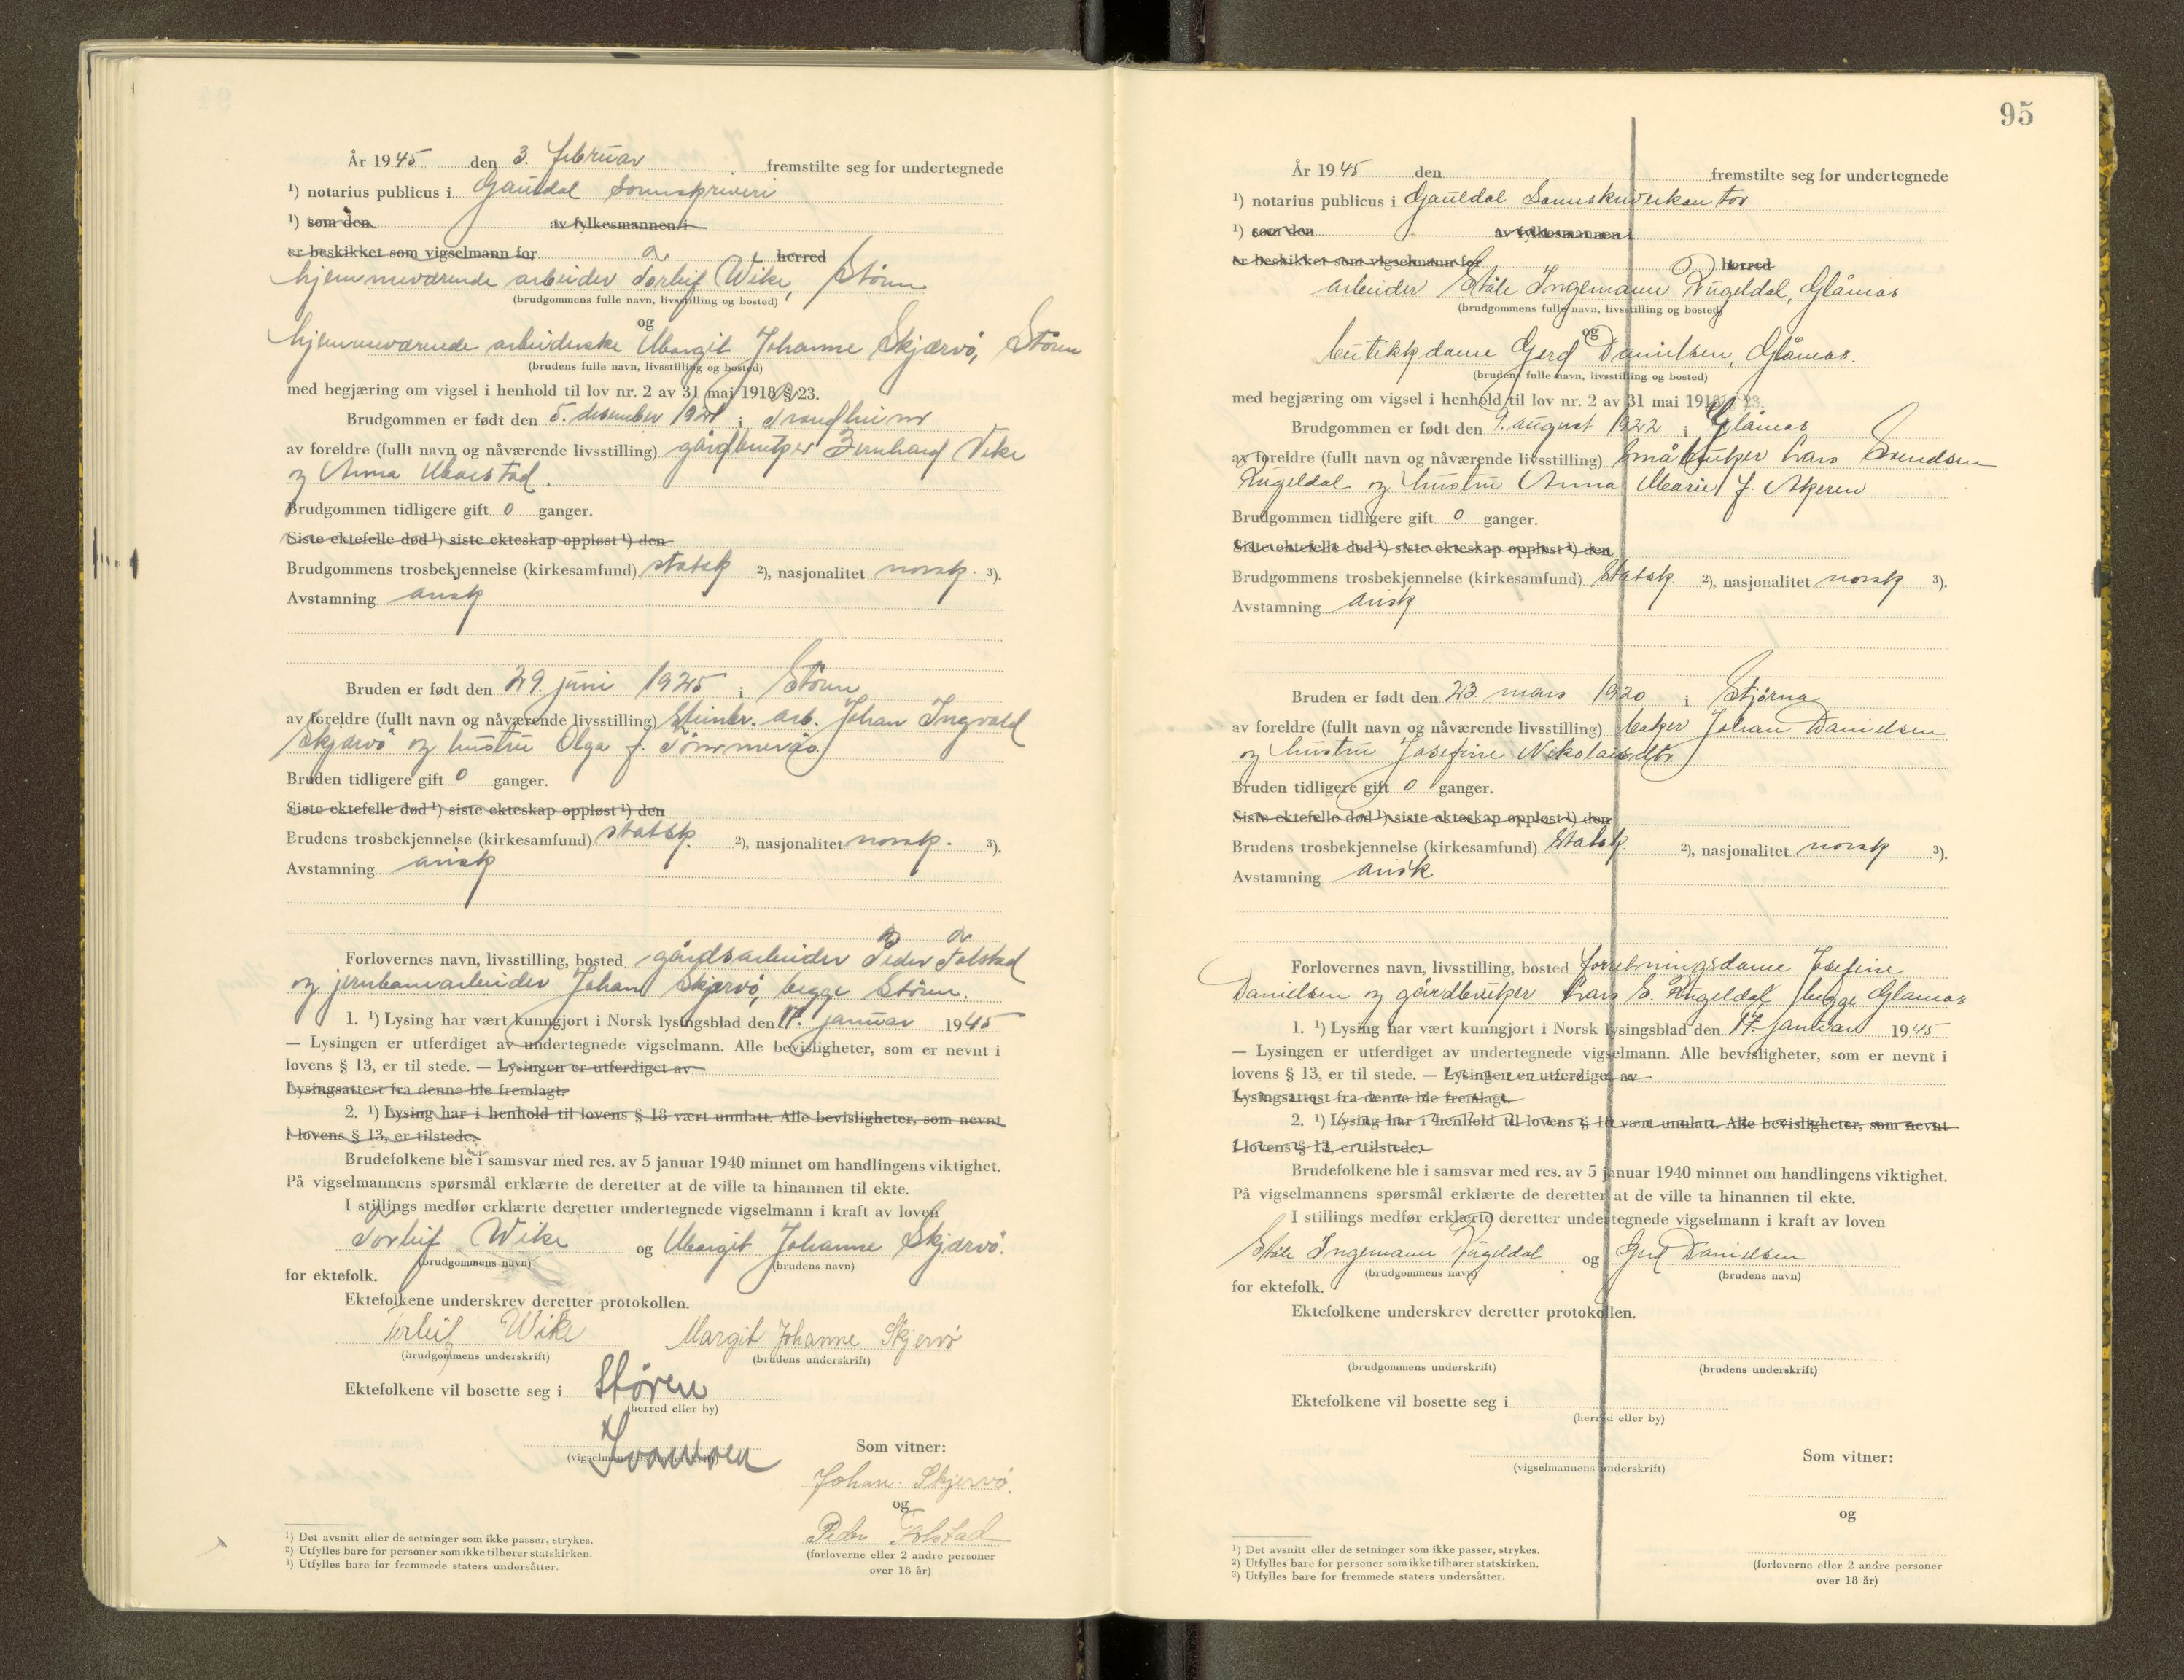 År 1945 den 3. februar fremstilte seg for undertegnede
¹) notarius publicus i Gauldal sorenskriveri
¹) som den av fylkesmannen i
er beskikket som vigselmann for herred
hjemmeværende arbeider Torleif Wike, Støren
(brudgommens fulle navn, livsstilling og bosted)
og
hjemmeværende arbeiderske Margit Johanne Skjærvö, Støren
(brudens fulle navn, livsstilling og bosted)
med begjæring om vigsel i henhold til lov nr. 2 av 31 mai 1918 § 23.
Brudgommen er født den 5. desember 1921 i Trondheim
av foreldre (fullt navn og nåværende livsstilling) gårdbruker Bernhard Vike
og Anna
Brudgommen tidligere gift 0 ganger.
Siste ektefelle død ¹) siste ekteskap oppløst ¹) den
Brudgommens trosbekjennelse (kirkesamfund) statsk ²), nasjonalitet norsk. ³).
Avstamning arisk
Bruden er født den 29. juni 1925 i Støren
av foreldre (fullt navn og nåværende livsstilling) Steinbr. arb. Johan Ingvald
Skjærvö og hustru Olga f.
Bruden tidligere gift 0 ganger.
Siste ektefelle død ¹) siste ekteskap oppløst ¹) den
Brudens trosbekjennelse (kirkesamfund) statsk. ²), nasjonalitet norsk. ³).
Avstamning arisk
Forlovernes navn, livsstilling, bosted gårdsarbeider Peder Folstad
og jernbanearbeider Johan Skjærvö, begge Støren.
1. ¹) Lysing har vært kunngjort i Norsk lysingsblad den 17. januar 1945
— Lysingen er utferdiget av undertegnede vigselmann. Alle bevisligheter, som er nevnt i
lovens § 13, er til stede. — Lysingen er utferdiget av
Lysingsattest fra denne ble fremlagt.
2. ¹) Lysing har i henhold til lovens § 18 vært unnlatt. Alle bevisligheter, som nevnt
i lovens § 13, er tilstede.
Brudefolkene ble i samsvar med res. av 5 januar 1940 minnet om handlingens viktighet.
På vigselmannens spørsmål erklærte de deretter at de ville ta hinannen til ekte.
I stillings medfør erklærte deretter undertegnede vigselmann i kraft av loven
Torleif Wike og Margit Johanne Skjærvö.
(brudgommens navn) (brudens navn)
for ektefolk.
Ektefolkene underskrev deretter protokollen.
Torleif Wike Margit Johanne Skjervö
(brudgommens underskrift) (brudens underskrift)
Ektefolkene vil bosette seg i Støren
(herred eller by)
(vigselmannens underskrift)
Som vitner:
Johan Skjervö.
og
Peder Folstad
(forloverne eller 2 andre personer
over 18 år)
¹) Det avsnitt eller de setninger som ikke passer, strykes.
²) Utfylles bare for personer som ikke tilhører statskirken.
³) Utfylles bare for fremmede staters undersåtter.
95
År 1945 den fremstilte seg for undertegnede
¹) notarius publicus i Gauldal Sorenskriverkontor
¹) som den av fylkesmannen i
er beskikket som vigselmann for herred
arbeider Ståle Ingemann Rugeldal, Glåmos
(brudgommens fulle navn, livsstilling og bosted)
og
butikkdame Gerd Danielsen, Glåmos.
(brudens fulle navn, livsstilling og bosted)
med begjæring om vigsel i henhold til lov nr. 2 av 31 mai 1918 § 23.
Brudgommen er født den 9. august 1922 i Glåmos
av foreldre (fullt navn og nåværende livsstilling) småbruker Lars Svendsen
Rugeldal og hustru Anna Marie f. Akeren
Brudgommen tidligere gift 0 ganger.
Siste ektefelle død ¹) siste ekteskap oppløst ¹) den
Brudgommens trosbekjennelse (kirkesamfund) Statsk. ²), nasjonalitet norsk ³).
Avstamning arisk
Bruden er født den 23. mars 1920 i Stjørna
av foreldre (fullt navn og nåværende livsstilling) baker Johan Danielsen
og hustru Josefine Nikolaisdtr.
Bruden tidligere gift 0 ganger.
Siste ektefelle død ¹) siste ekteskap oppløst ¹) den
Brudens trosbekjennelse (kirkesamfund) Statsk. ²), nasjonalitet norsk ³).
Avstamning arisk
Forlovernes navn, livsstilling, bosted forretningsdame Josefine
Danielsen og gårdbruker Lars S. Rugeldal, begge Glåmos
1. ¹) Lysing har vært kunngjort i Norsk lysingsblad den 17. januar 1945
— Lysingen er utferdiget av undertegnede vigselmann. Alle bevisligheter, som er nevnt i
lovens § 13, er til stede. — Lysingen er utferdiget av
Lysingsattest fra denne ble fremlagt.
2. ¹) Lysing har i henhold til lovens § 18 vært unnlatt. Alle bevisligheter, som nevnt
i lovens § 13, er tilstede.
Brudefolkene ble i samsvar med res. av 5 januar 1940 minnet om handlingens viktighet.
På vigselmannens spørsmål erklærte de deretter at de ville ta hinannen til ekte.
I stillings medfør erklærte deretter undertegnede vigselmann i kraft av loven
Ståle Ingemann Rugeldal og Gerd Danielsen
(brudgommens navn) (brudens navn)
for ektefolk.
Ektefolkene underskrev deretter protokollen.
(brudgommens underskrift) (brudens underskrift)
Ektefolkene vil bosette seg i
(herred eller by)
(vigselmannens underskrift)
Som vitner:
og
(forloverne eller 2 andre personer
over 18 år)
¹) Det avsnitt eller de setninger som ikke passer, strykes.
²) Utfylles bare for personer som ikke tilhører statskirken.
³) Utfylles bare for fremmede staters undersåtter.